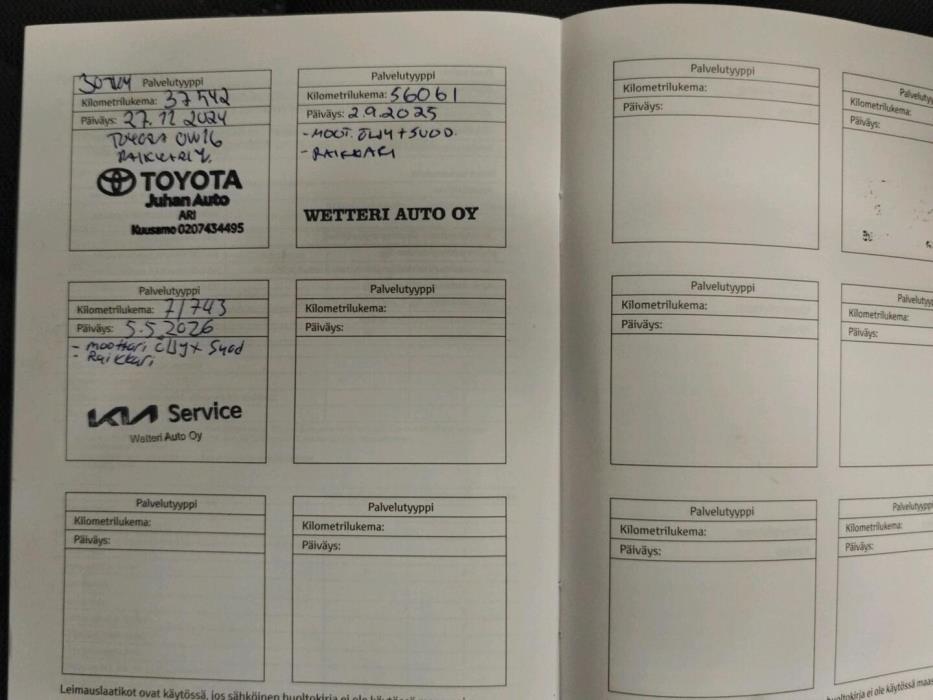 30TKM Palvelutyyppi
Kilometrilukema: 37542
Päiväys: 27.12 2024
TOYOTA 0W16
RAIKKARI
TOYOTA
Juhan Auto
ARI
Kuusamo 0207434495
Palvelutyyppi
Kilometrilukema: 56061
Päiväys: 2.9.2025
- MOOT. ÖLJY + SUOD.
- RAIKKARI
WETTERI AUTO OY
Palvelutyyppi
Kilometrilukema:
Päiväys:
Palvelutyyppi
Kilometrilukema:
Päiväys:
Palvelutyyppi
Kilometrilukema: 71743
Päiväys: 5.5.2026
- moottori öljy + Suod
- Raikkari
KIA Service
Wetteri Auto Oy
Palvelutyyppi
Kilometrilukema:
Päiväys:
Palvelutyyppi
Kilometrilukema:
Päiväys:
Palvelutyypp
Kilometrilukema:
Päiväys:
Palvelutyyppi
Kilometrilukema:
Päiväys:
Palvelutyyppi
Kilometrilukema:
Päiväys:
Palvelutyyppi
Kilometrilukema:
Päiväys:
Palvelutyypp
Kilometrilukema:
Päiväys:
Leimauslaatikot ovat käytössä, jos sähköinen huoltokirja ei ole
huoltokirja ei ole käytössä maas